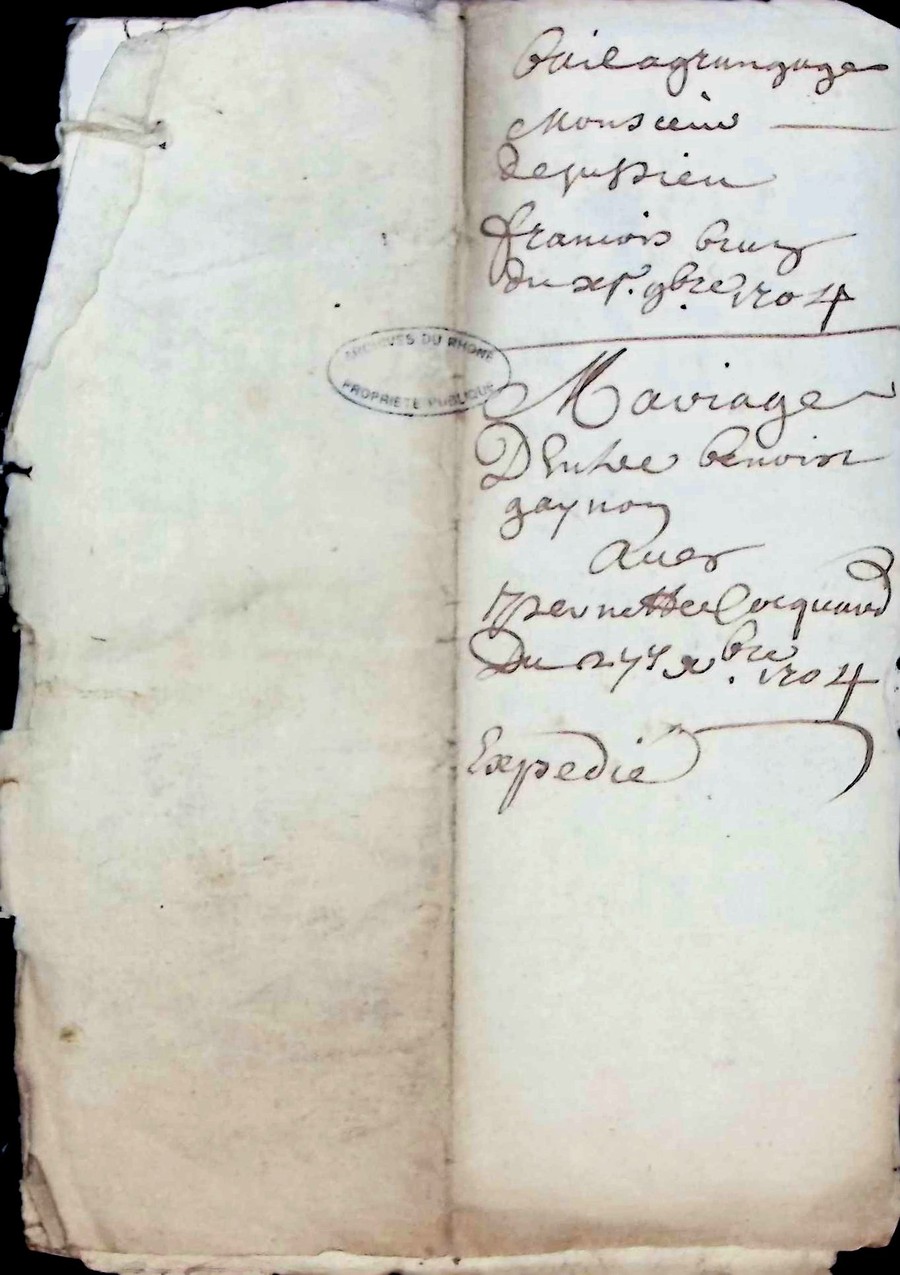 Bail a grangage
Monsieur
Dejussieu
francois bruy
du xe. 9bre 1704
ARCHIVES DU RHONE
PROPRIETE PUBLIQUE
Mariage
D'Entre benoist
gaynon
Avec
pernette Cocquard
Du 9bre 1704
Expedié